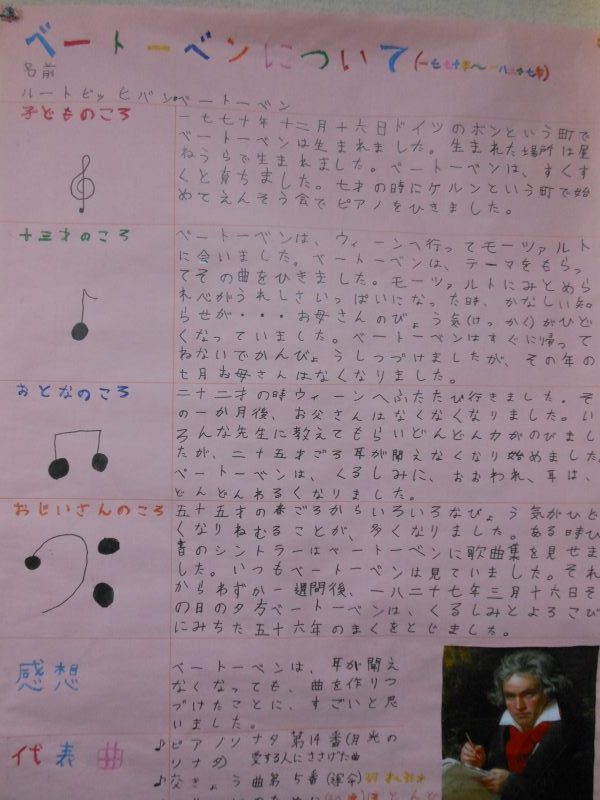 ベートーベンについて(一七七十年〜一八二十七年)
名前
ルートビッヒバン・ベートーベン
子どものころ
一七七十年十二月十六日ドイツのボンという町で
ベートーベンは生まれました。生まれた場所は屋
ねうらで生まれました。ベートーベンは、すくす
くと育ちました。七才の時にケルンという町で始
めてえんそう会でピアノをひきました。
十三才のころ
ベートーベンは、ウィーンへ行ってモーツァルト
に会いました。ベートーベンは、テーマをもらっ
てその曲をひきました。モーツァルトにみとめら
れ心がうれしさいっぱいになった時、かなしい知
らせが・・・お母さんのびょう気(けっかく)がひど
くなっていました。ベートーベンはすぐに帰って
ねないでかんびょうしつづけましたが、その年の
七月お母さんはなくなりました。
おとなのころ
二十二才の時ウィーンへふたたび行きました。そ
の一か月後、お父さんはなくなくなりました。い
ろんな先生に教えてもらいどんどん力がのびまし
たが、二十五才ごろ耳が聞えなくなり始めました。
ベートーベンは、くるしみに、おおわれ、耳は、
どんどんわるくなりました。
おじいさんのころ
五十五才の春ごろからいろいろなびょう気がひど
くなりねむることが、多くなりました。ある時ひ
書のシントラーはベートーベンに歌曲集を見せま
した。いつもベートーベンは見ていました。それ
からわずか一週間後、一八二十七年三月十六日そ
の日の夕方ベートーベンは、くるしみとよろこび
にみちた五十六年のまくをとじました。
感想
ベートーベンは、耳が聞え
なくなっても、曲を作りつ
づけたことに、すごいと思
いました。
代表曲
♪ピアノソナタ第14番(月光の
ソナタ) 愛する人にささげた曲
♪なきょう曲第5番(運命)